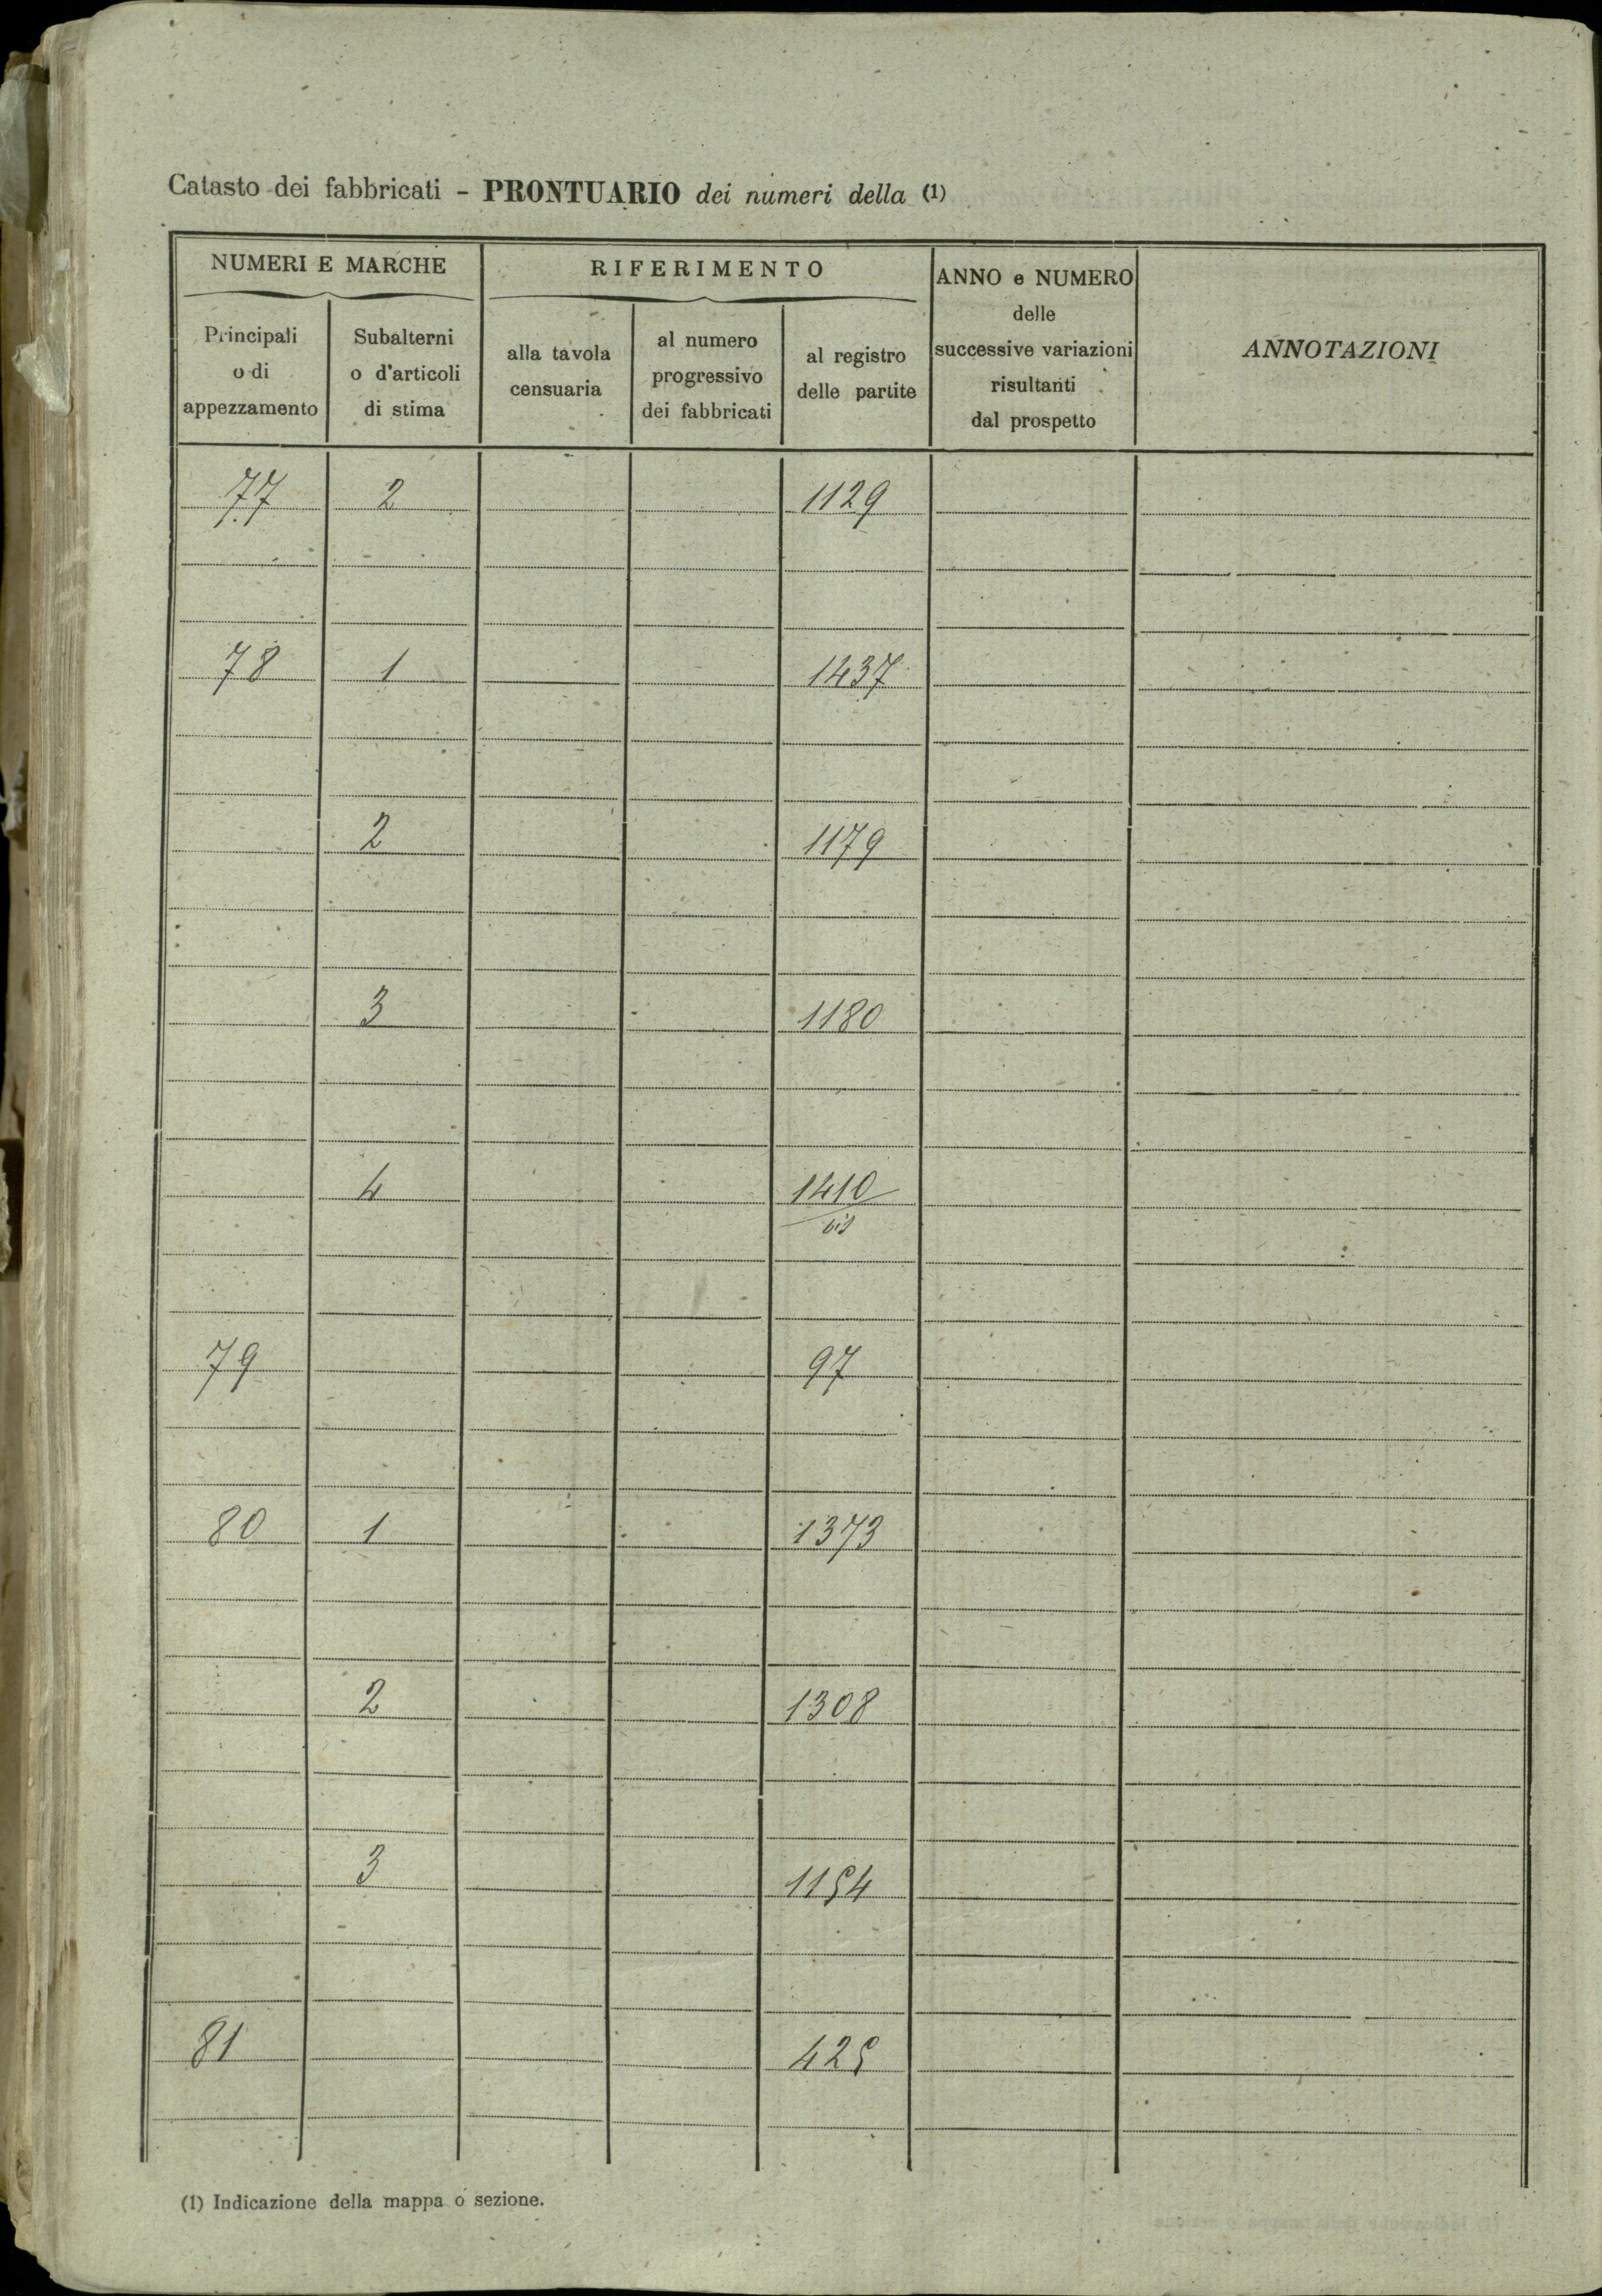 Catasto dei fabbricati - PRONTUARIO dei numeri della (1)
NUMERI E MARCHE
RIFERIMENTO
ANNO e NUMERO
delle
successive variazioni
risultanti
dal prospetto
ANNOTAZIONI
Principali
o di
appezzamento
Subalterni
o d'articoli
di stima
alla tavola
censuaria
al numero
progressivo
dei fabbricati
al registro
delle partite
77 2 1129
78 1 1437
2 1179
3 1180
4 1410
bis
79 97
80 1 1373
2 1308
3 1154
81 425
(1) Indicazione della mappa o sezione.